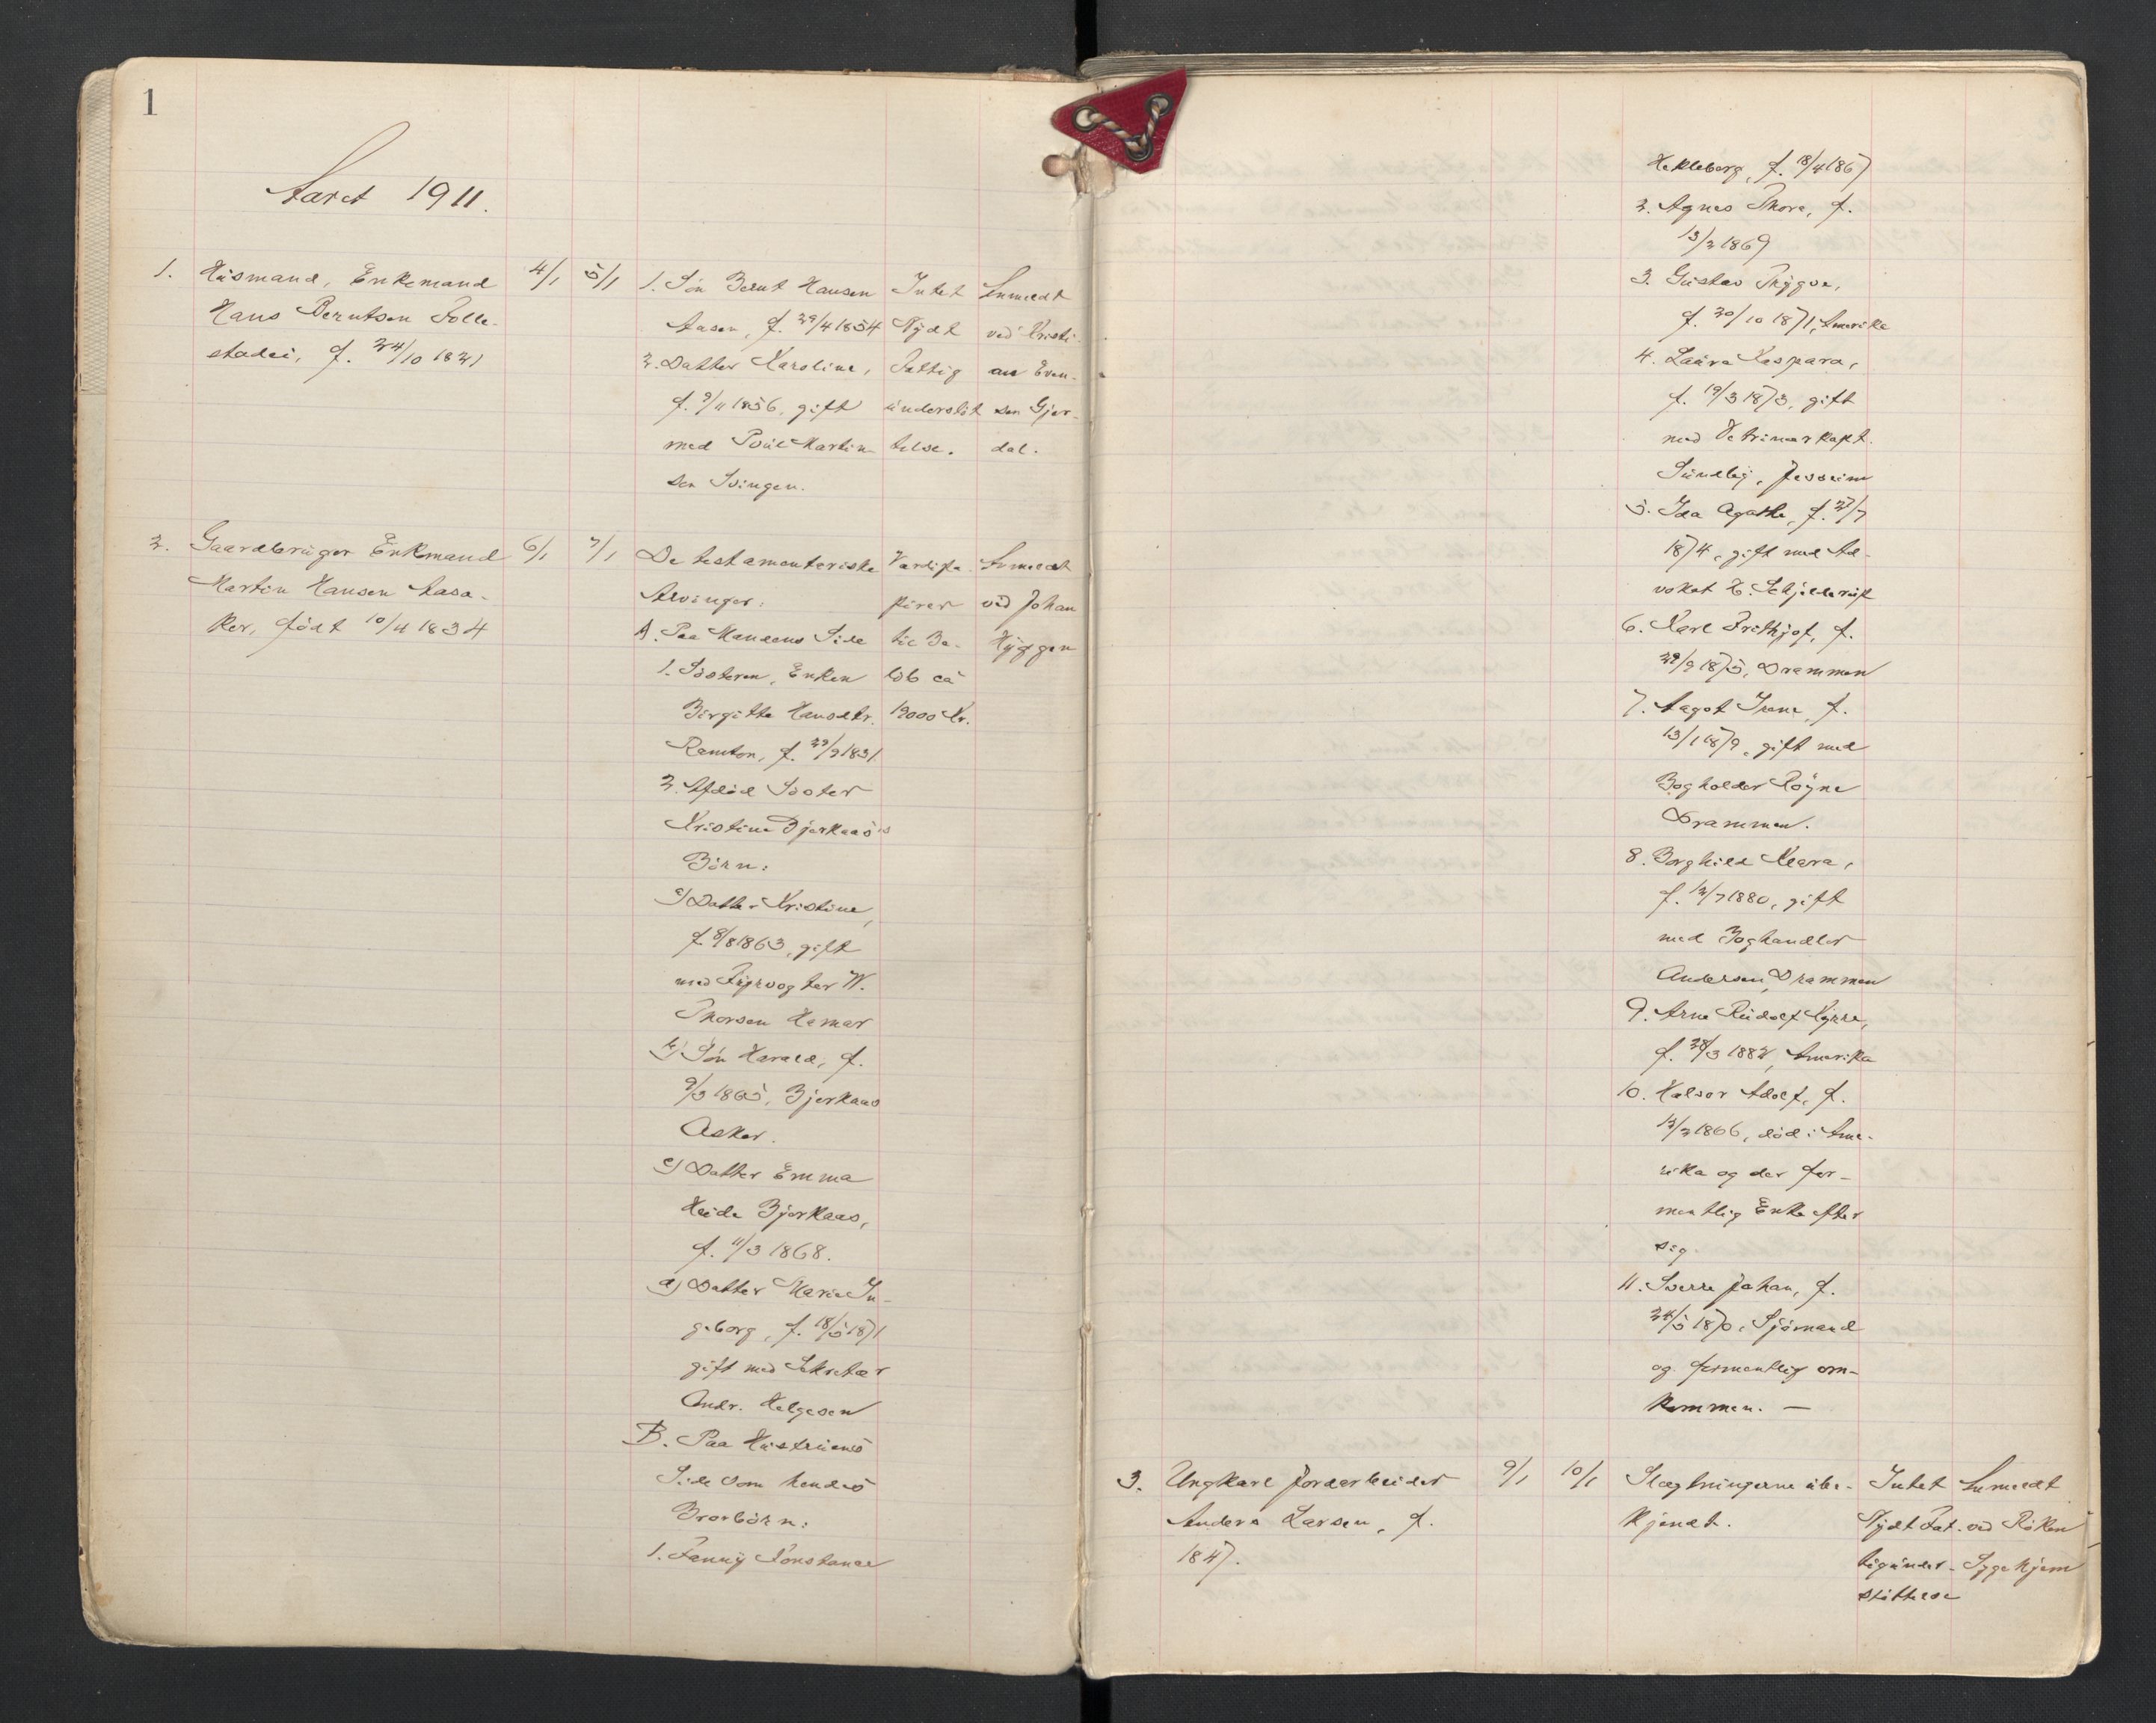 1
Aaret 1911.
1. Husmand, Enkemand
Hans Berntsen Folle-
stadei, f. 24/10 1821
4/1 5/1
1. Søn Bernt Hansen
Aasen, f. 29/4 1854
2. Datter Karoline,
f. 9/11 1856, gift
med Poul Martin-
sen Svingen.
Intet
Nydt
Fattig
understøt-
telse.
Anmeldt
ved Kristi-
an Even-
sen Gjer-
dal.
2. Gaardbruger Enkemand
Martin Hansen Aasa-
ker, født 10/4 1834
6/1 7/1
De testamenteriske
Arvinger:
A. Paa Mandens Side
1. Søsteren, Enken
Birgitte Hansdtr.
Ramton, f. 29/9 1831
2. Afdød Søster
Kristine Bjerkaas's
Børn:
a) Datter Kristine,
f. 8/8 1863, gift
med Fyrvogter W.
Thorsen Hamar
b) Søn Harald, f.
9/5 1865, Bjerkaas
Asker.
c) Datter Emma
Bjerkaas,
f. 11/3 1868.
d) Datter Marie In-
geborg, f. 18/5 1871
gift med Sekretær
Andr. Helgesen
B. Paa Hustruens
Side som hendes
Brorbørn:
1. Fanny Konstance
Værdipa-
pirer
til Be-
løb ca
12000 Kr.
Anmeldt
ved Johan
Hyggen
Hekleberg, f. 18/4 1867
2. Agnes Thora, f.
13/2 1869
3. Gustav Trygve,
f. 30/10 1871, Amerika
4. Laura Kaspara,
f. 19/3 1873, gift
med Vetrinærkapt.
Sundby, Jesseim
5. Ida Agathe, f. 27/7
1874, gift med Ad-
vokat H. Schjelderup
6. Karl Frithjof, f.
29/9 1875, Drammen
7. Aagot Irene, f.
13/1 1879, gift med
Bogholder Røyne
Drammen.
8. Borghild Klara,
f. 12/7 1880, gift
med Boghandler
Andersen, Drammen
9. Arne Rudolf Kyrre,
f. 28/3 1882, Amerika
10. Halvor Adolf, f.
12/2 1866, død i Ame-
rika og der for-
mentlig Enke efter
sig.
11. Sverre Johan, f.
24/5 1870, Sjømand
og formentlig om-
kommen. —
3. Ungkarl Jordarbeider
Anders Larsen, f.
1847.
9/1 10/1
Slægtningerne ube-
kjendt.
Intet
Nydt Fat-
tigunder-
støttelse
Anmeldt
ved Røken
Sygehjem